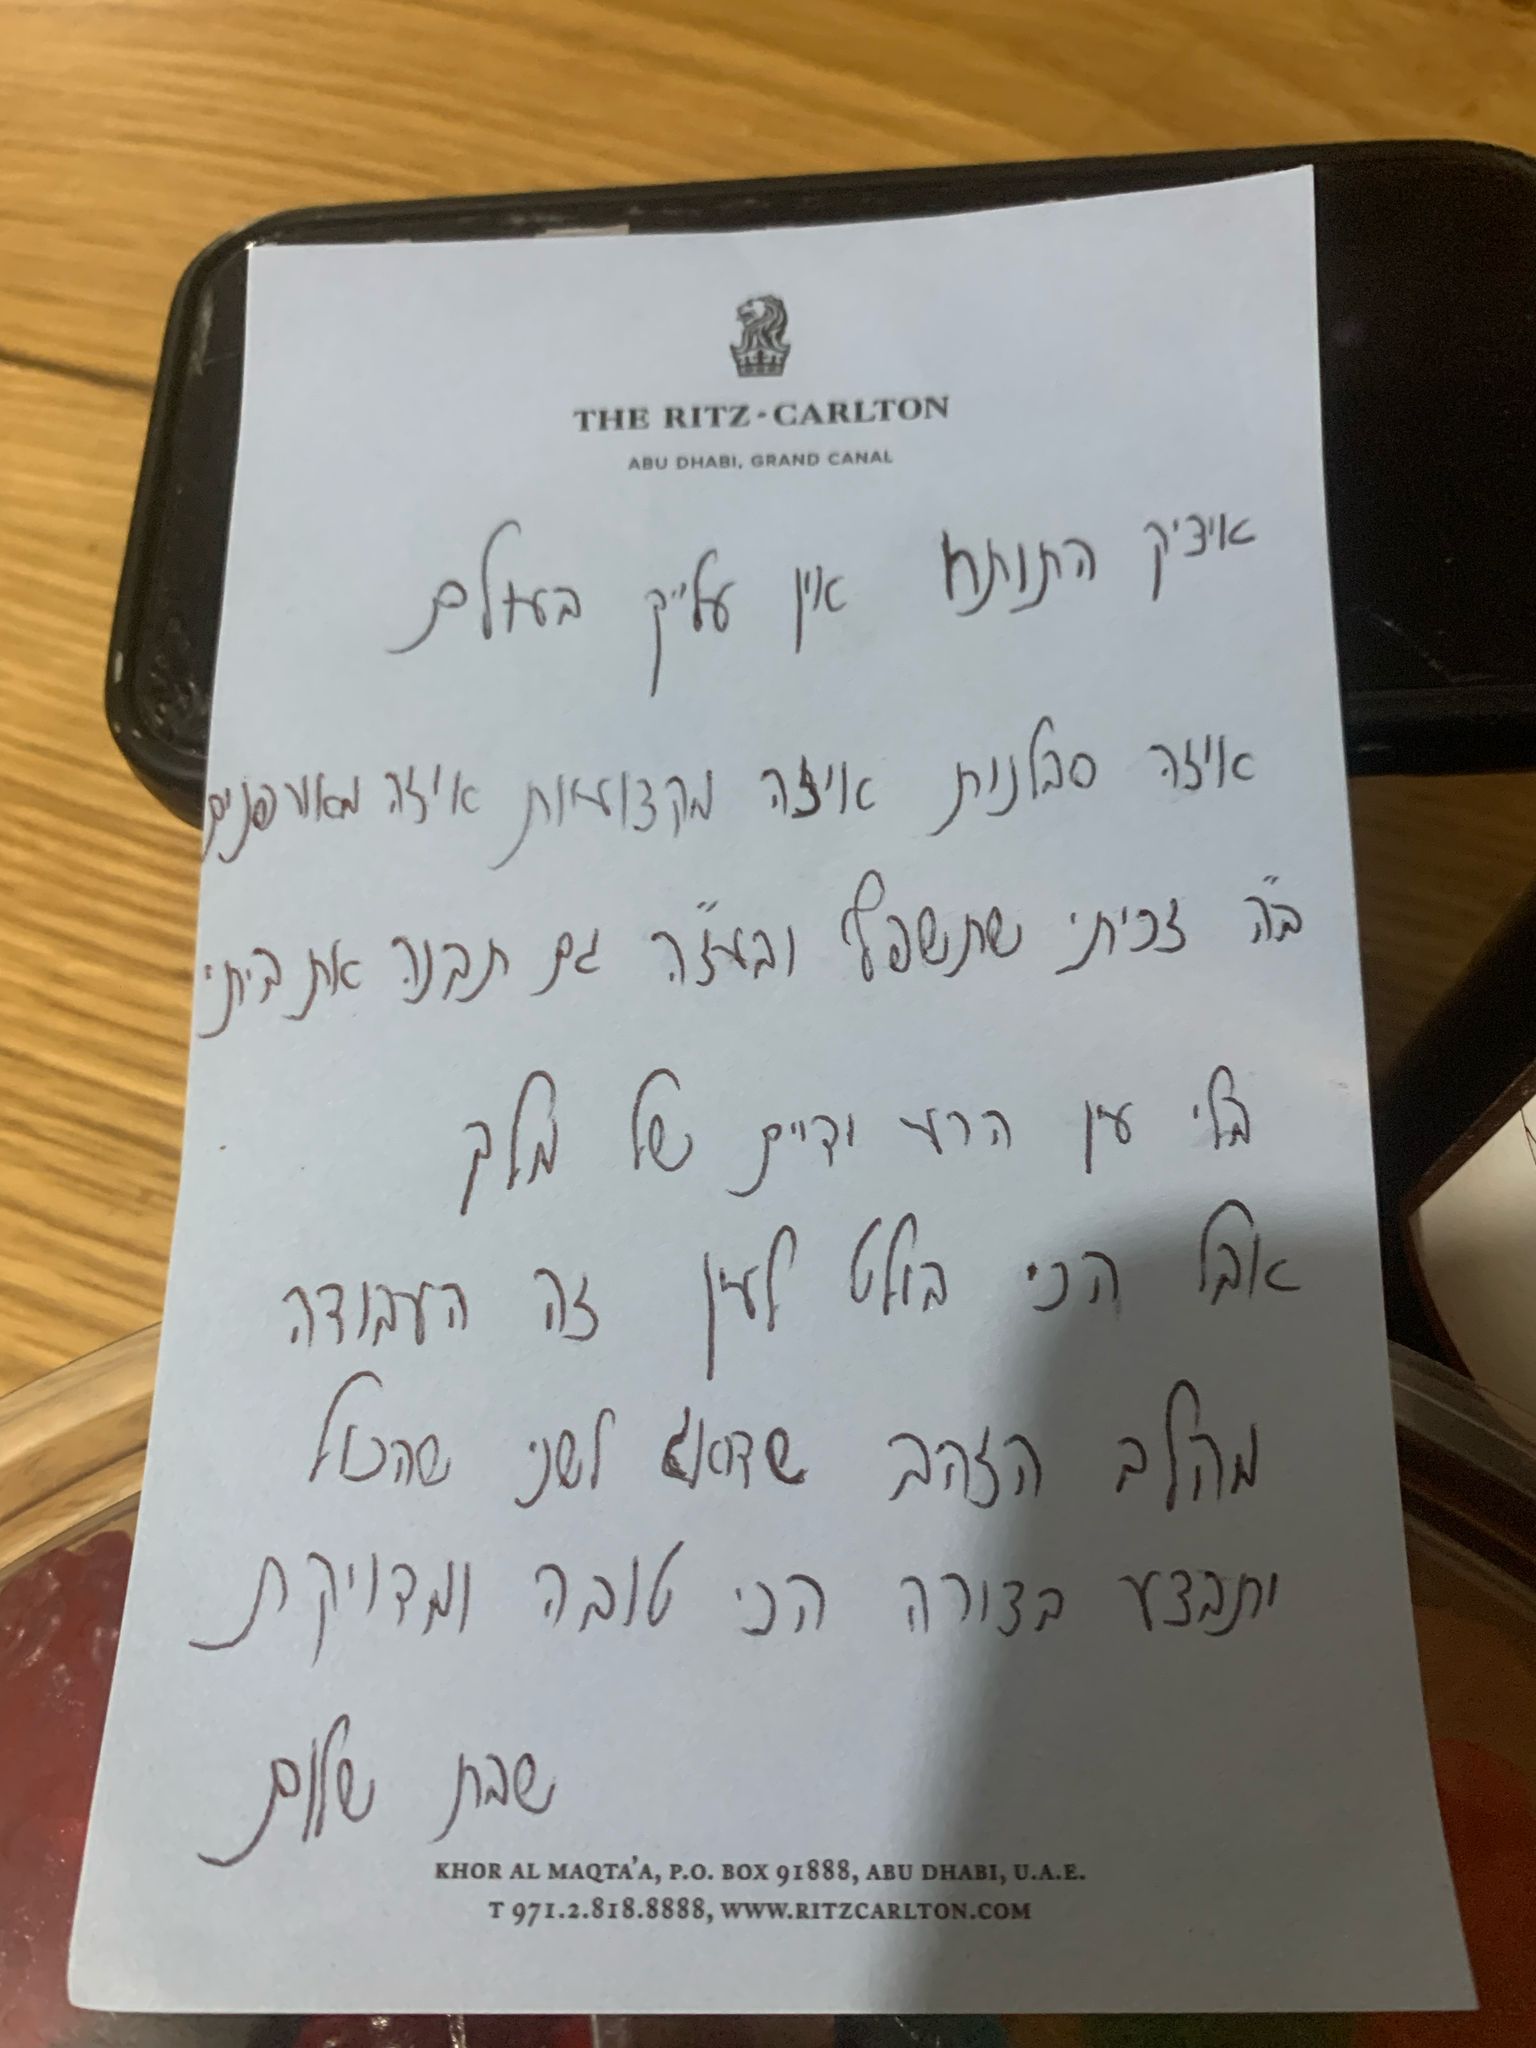 THE RITZ-CARLTON
ABU DHABI, GRAND CANAL
איציק התותח אין עלייך בעולם
איזה סבלנות איזה מקצועיות איזה מאור פנים
ב"ה זכיתי שתשפץ ובעז"ה גם תבנה את ביתי
בלי עין הרע ידיים של מלך
אבל הכי בולט לעין זה העבודה
מהלב הזהב שדואג לשני שהכול
יתבצע בצורה הכי טובה ומדויקת
שבת שלום
KHOR AL MAQTA'A, P.O. BOX 91888, ABU DHABI, U.A.E.
T 971.2.818.8888, WWW.RITZCARLTON.COM